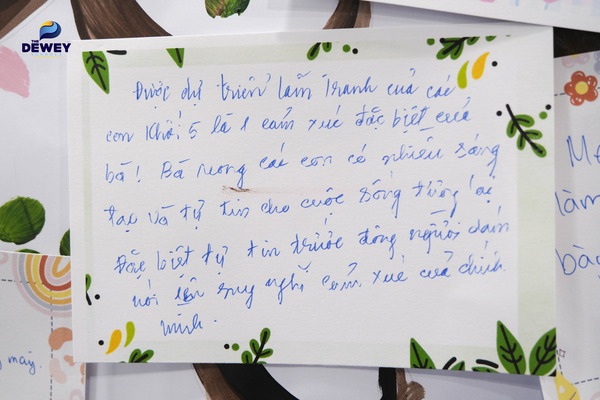 THE
DEWEY
SCHOOLS
Được dự triển lãm Tranh của các
con Khối 5 là 1 cảm xúc đặc biệt của
bà! Bà mong các con có nhiều sáng
tạo và tự tin cho cuộc sống tương lai
Đặc biệt tự tin trước đông người dám
nói lên suy nghĩ cảm xúc của chính
mình.
làm
bà
máy.